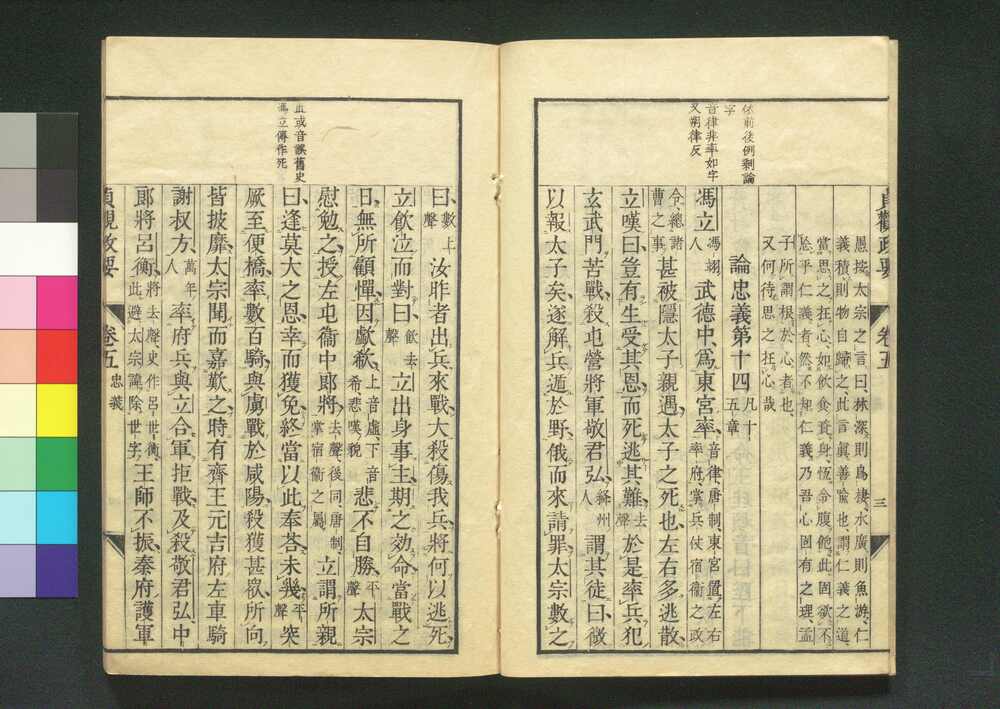 依前後例剩論
字
音律非率如字
又朔律反
貞觀政要 卷五 三
愚按太宗之言曰林深則鳥棲水廣則魚游仁
義積則物自歸之此言眞善喩也謂仁義之道
當思之在心如飲食資身恆令腹飽此固欲不
怠乎仁義者然不知仁義乃吾心固有之理孟
子所謂根於心者也
又何待思之在心哉
論忠義第十四 凡十五章
馮立 馮翊人 武德中爲東宮率 音律唐制東宮置左右率府掌兵仗宿衞之政
令總諸曹之事 甚被隱太子親遇太子之死也左右多逃散
立嘆曰豈有生受其恩而死逃其難 去聲 於是率兵犯
玄武門苦戰殺屯營將軍敬君弘 絳州人 謂其徒曰微
以報太子矣遂解兵遁於野俄而來請罪太宗數之
血或音誤舊史
馮立傳作死
曰 數上聲 汝昨者出兵來戰大殺傷我兵將何以逃死
立飲泣而對曰 飲去聲 立出身事主期之効命當戰之
日無所顧憚因歔欷 上音虛下音希悲嘆貌 悲不自勝 平聲 太宗
慰勉之授左屯衞中郎將 去聲後同唐制掌宿衞之屬 立謂所親
曰逢莫大之恩幸而獲免終當以此奉荅未幾 平聲 突
厥至便橋率數百騎與虜戰於咸陽殺獲甚衆所向
皆披靡太宗聞而嘉歎之時有齊王元吉府左車騎
謝叔方 萬年人 率府兵與立合軍拒戰及殺敬君弘中
郎將呂衡 將去聲史作呂世衡此避太宗諱除世字 王師不振秦府護軍
貞觀政要 卷五 忠義